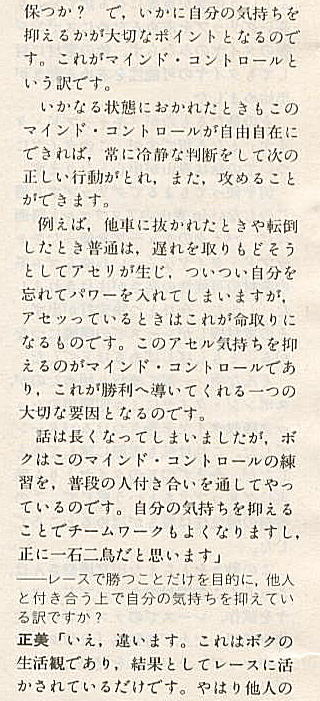 保つか？　で，いかに自分の気持ちを
抑えるかが大切なポイントとなるので
す。これがマインド・コントロールと
いう訳です。
　いかなる状態におかれたときもこの
マインド・コントロールが自由自在に
できれば，常に冷静な判断をして次の
正しい行動がとれ，また，攻めること
ができます。
　例えば，他車に抜かれたときや転倒
したとき普通は，遅れを取りもどそう
としてアセリが生じ，ついつい自分を
忘れてパワーを入れてしまいますが，
アセッっているときはこれが命取りに
なるものです。このアセル気持ちを抑
えるのがマインド・コントロールであ
り，これが勝利へ導いてくれる一つの
大切な要因となるのです。
　話は長くなってしまいましたが，ボ
クはこのマインド・コントロールの練
習を，普段の人付き合いを通してやっ
ているのです。自分の気持ちを抑える
ことでチームワークもよくなりますし，
正に一石二鳥だと思います」
——レースで勝つことだけを目的に，他人
と付き合う上で自分の気持ちを抑えてい
る訳ですか？
正美「いえ，違います。これはボクの
生活観であり，結果としてレースに活
かされているだけです。やはり他人の